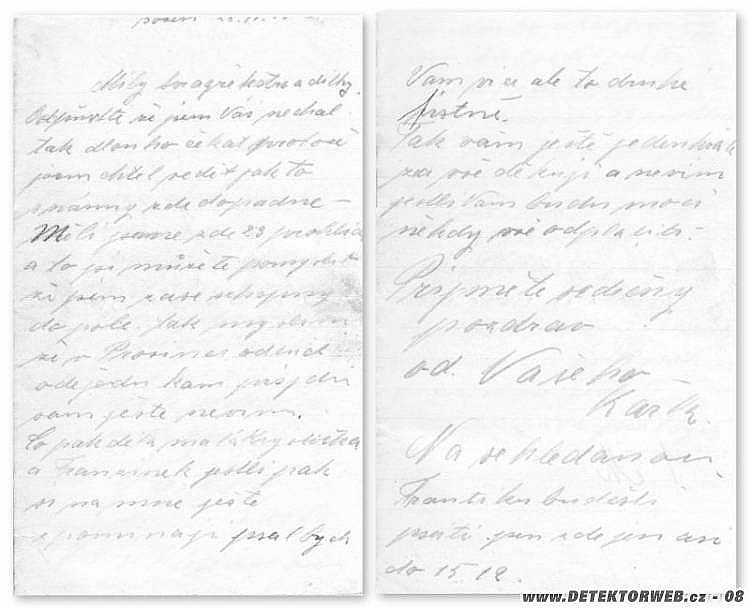 Milý švagře sestro a dítky.
Odpusťte že jsem Vás nechal
tak dlouho čekat protože
jsem chtěl vedět jak to
semnou zde dopadne –
Měli jsme zde 23 prohlíd
a to si můžete pomyslet
že jsem zase schopný
do pole. Tak myslím
že v Prosinci odsud
odejedu kam pojedu
vám ještě nevim.
Co pak dělá malá
a Francinek jestli pak
si na mne ještě
spomínají psal bych
Vam vice ale to druhé
ustně.
Tak vám ještě jedenkrát
za vše děkuji a nevim
jestli Vam budu moci
někdy vše odplatiti –
Prijměte srdečný
pozdrav
od Vašeho
Karla
Na schledanou
Frantíku budešli
psáti jsem zde jen asi
do 15.12.
www.DETEKTORWEB.cz - 08